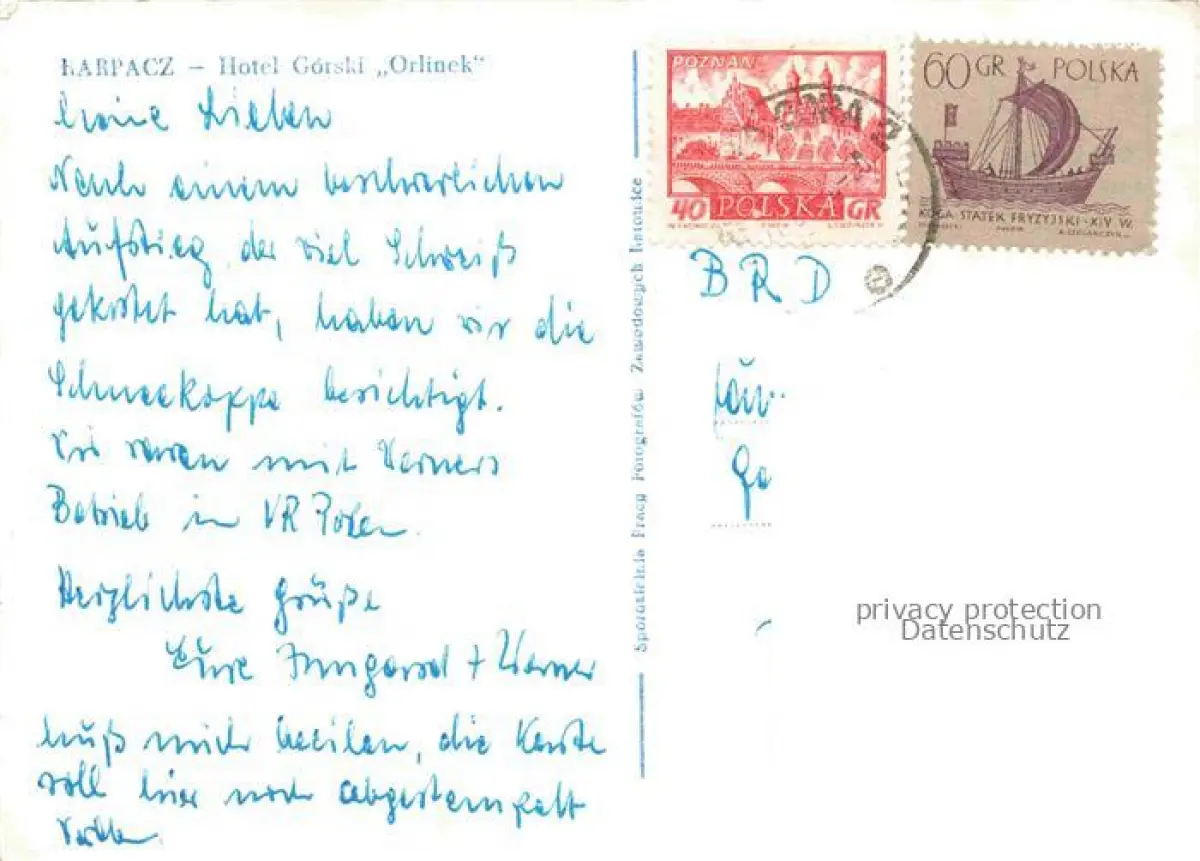 KARPACZ – Hotel Górski „Orlinek“
Meine Lieben
Nach einem beschwerlichen
Aufstieg, der viel Schweiß
gekostet hat, haben wir die
Schneekoppe besichtigt.
Wir waren mit Werners
Betrieb in VR Polen.
Herzlichste Grüße
Eure Irmgard + Werner
Muß mich beeilen, die Karte
soll hier noch abgestempelt
werden.
Spółdzielnia Pracy Fotografów Zawodowych Katowice
POZNAŃ
40 POLSKA GR
60 GR POLSKA
KOGA-STATEK FRYZYJSKI-XIV W.
BRD
privacy protection
Datenschutz